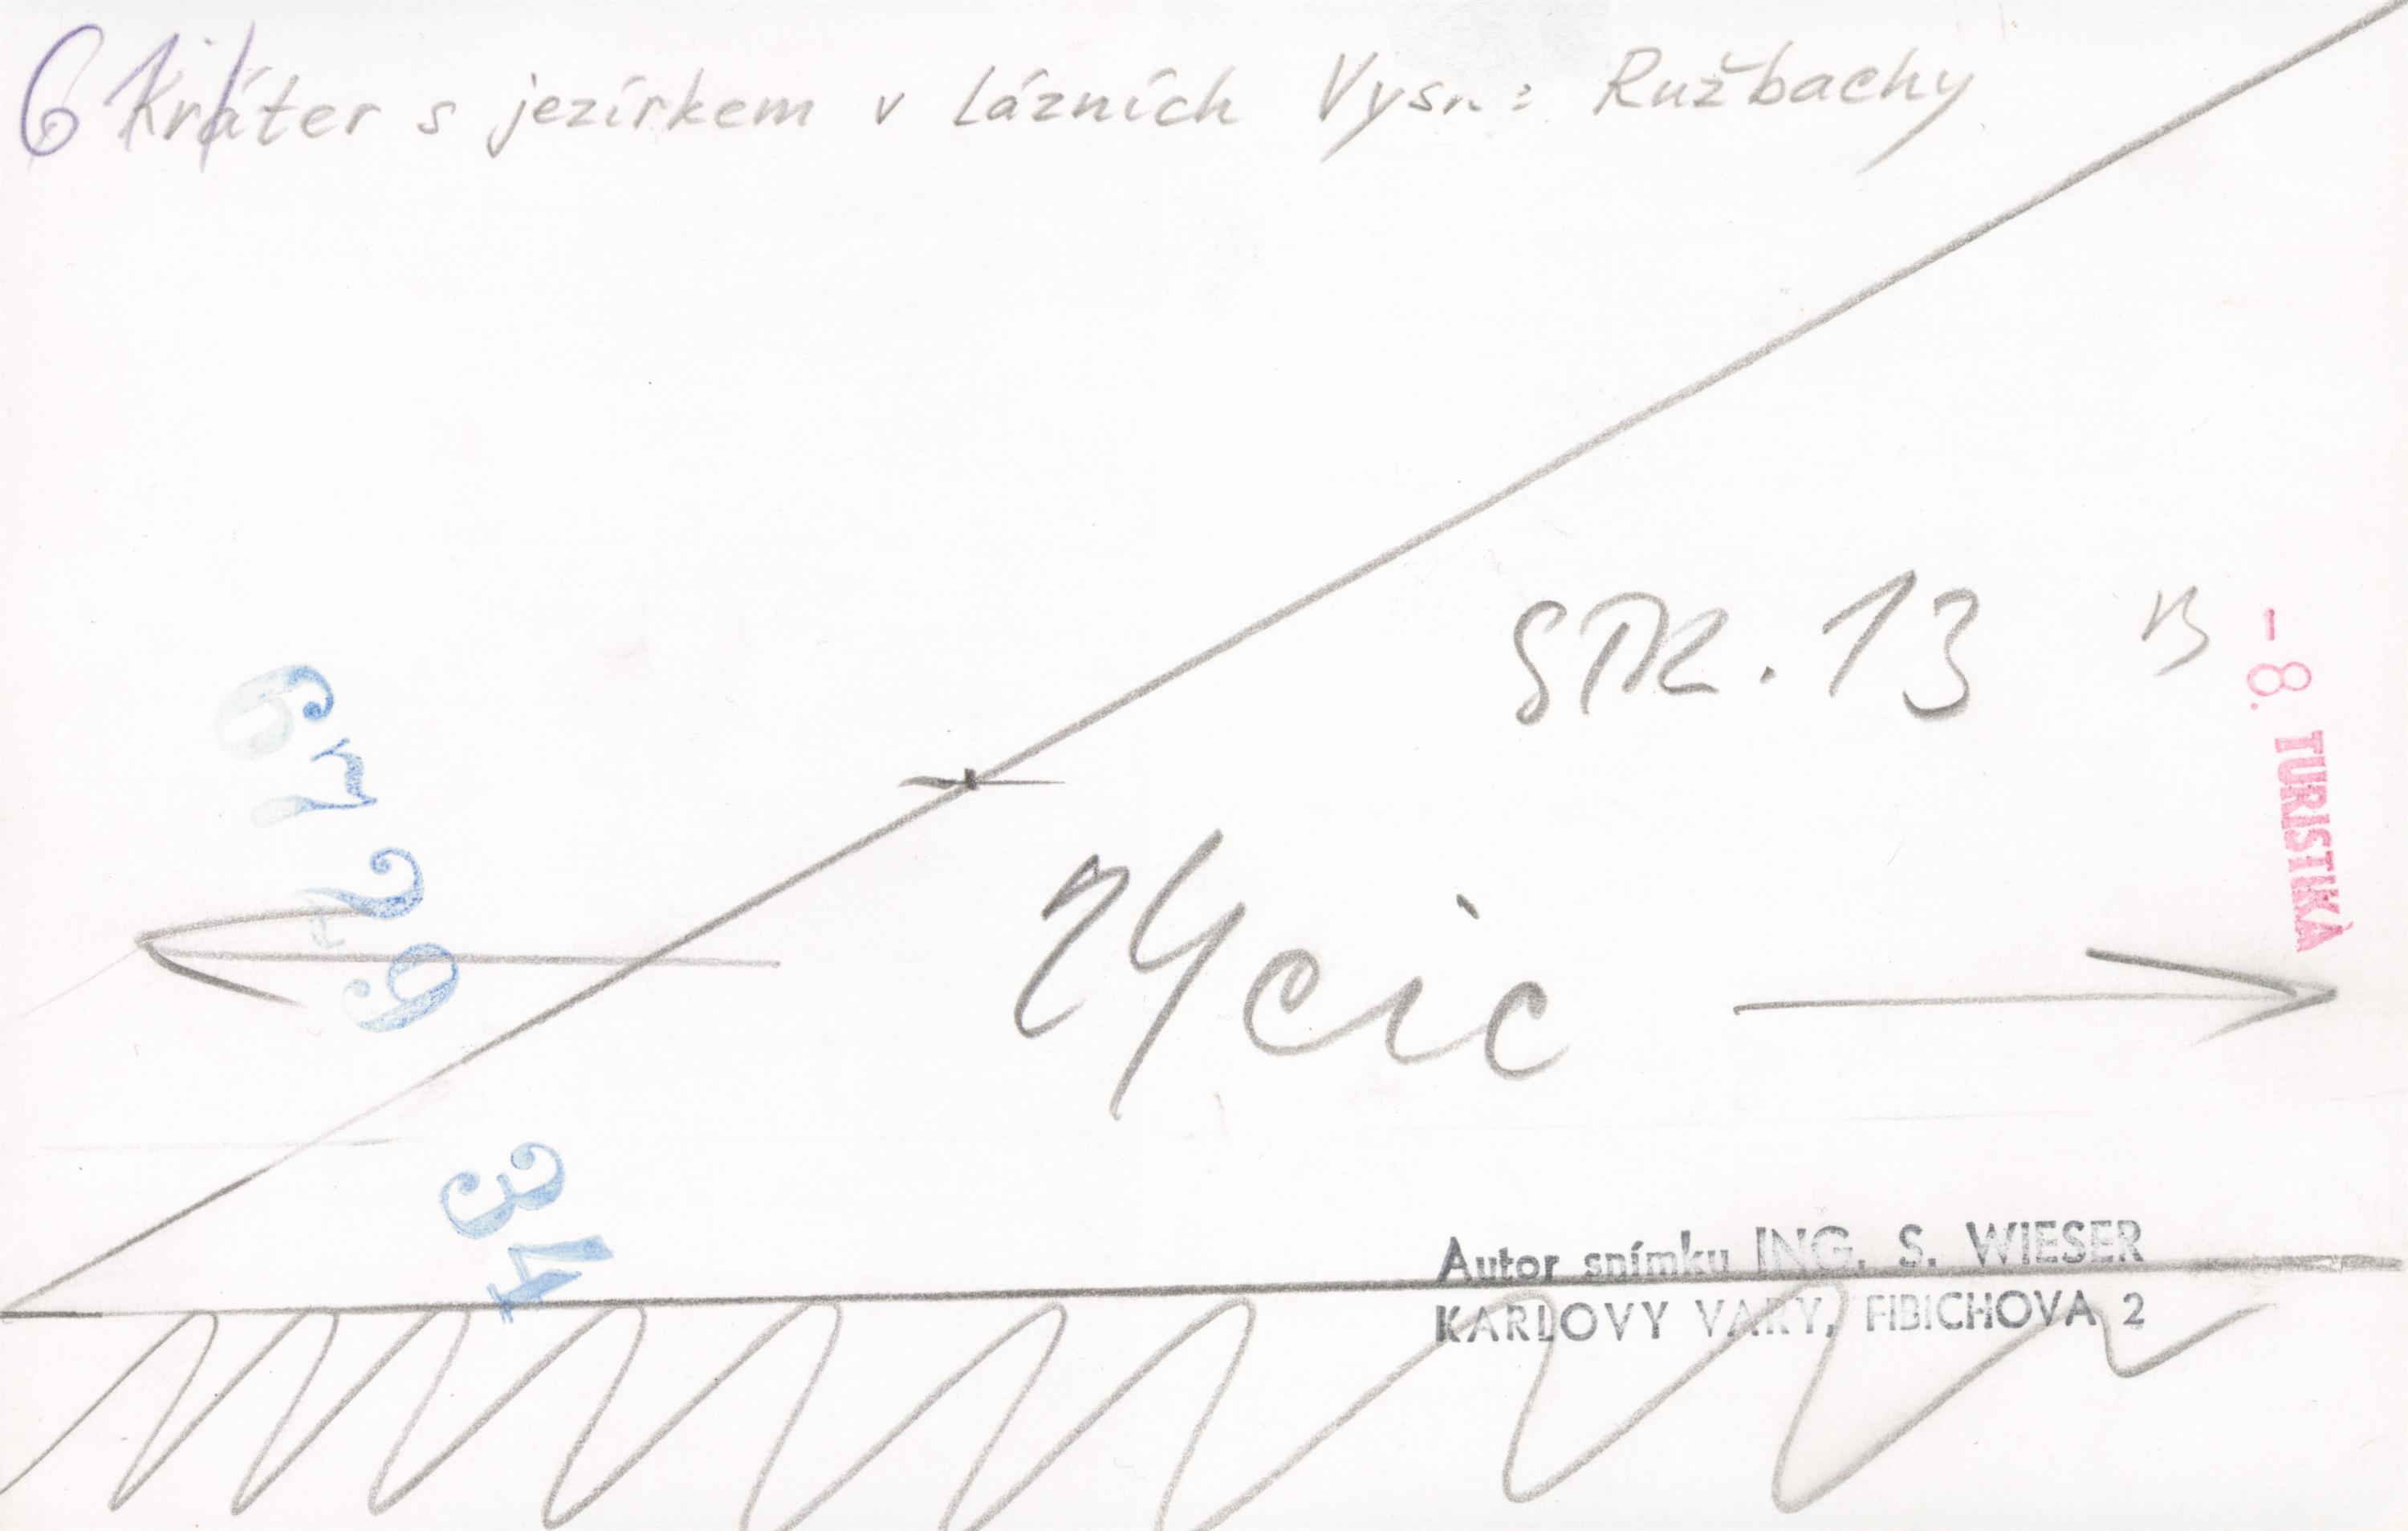 61/ Kráter s jezírkem v lázních Vyšn: Ružbachy
STR. 13
13
- 8. TURISTIKA
6729
24 cic
34
Autor snímku ING. S. WIESER
KARLOVY VARY, FIBICHOVA 2